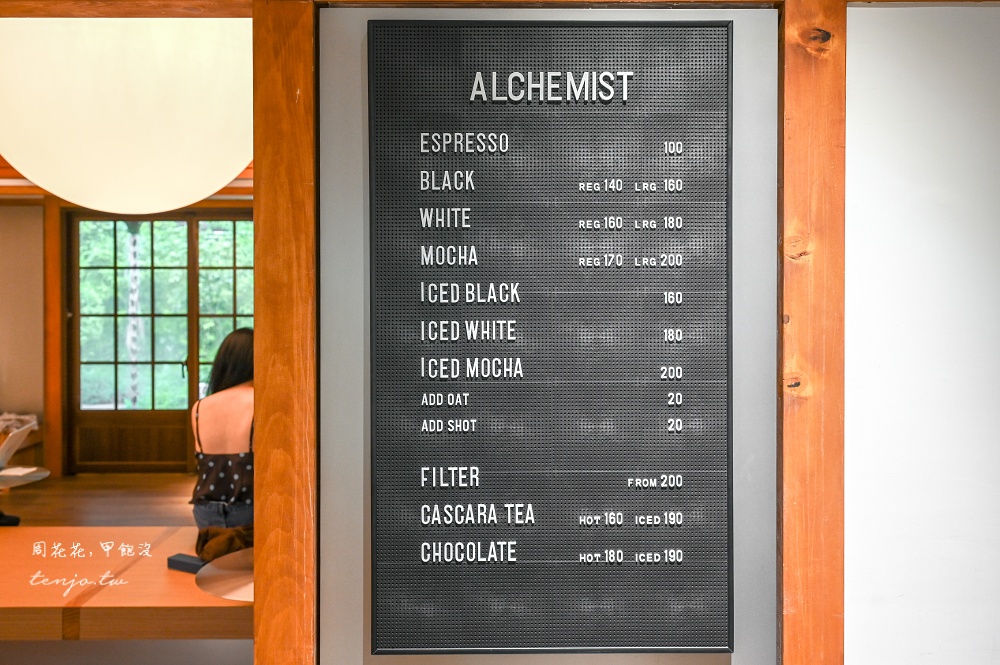 ALCHEMIST
ESPRESSO 100
BLACK REG 140 LRG 160
WHITE REG 160 LRG 180
MOCHA REG 170 LRG 200
ICED BLACK 160
ICED WHITE 180
ICED MOCHA 200
ADD OAT 20
ADD SHOT 20
FILTER FROM 200
CASCARA TEA HOT 160 ICED 190
CHOCOLATE HOT 180 ICED 190
周花花，甲飽沒
tenjo.tw